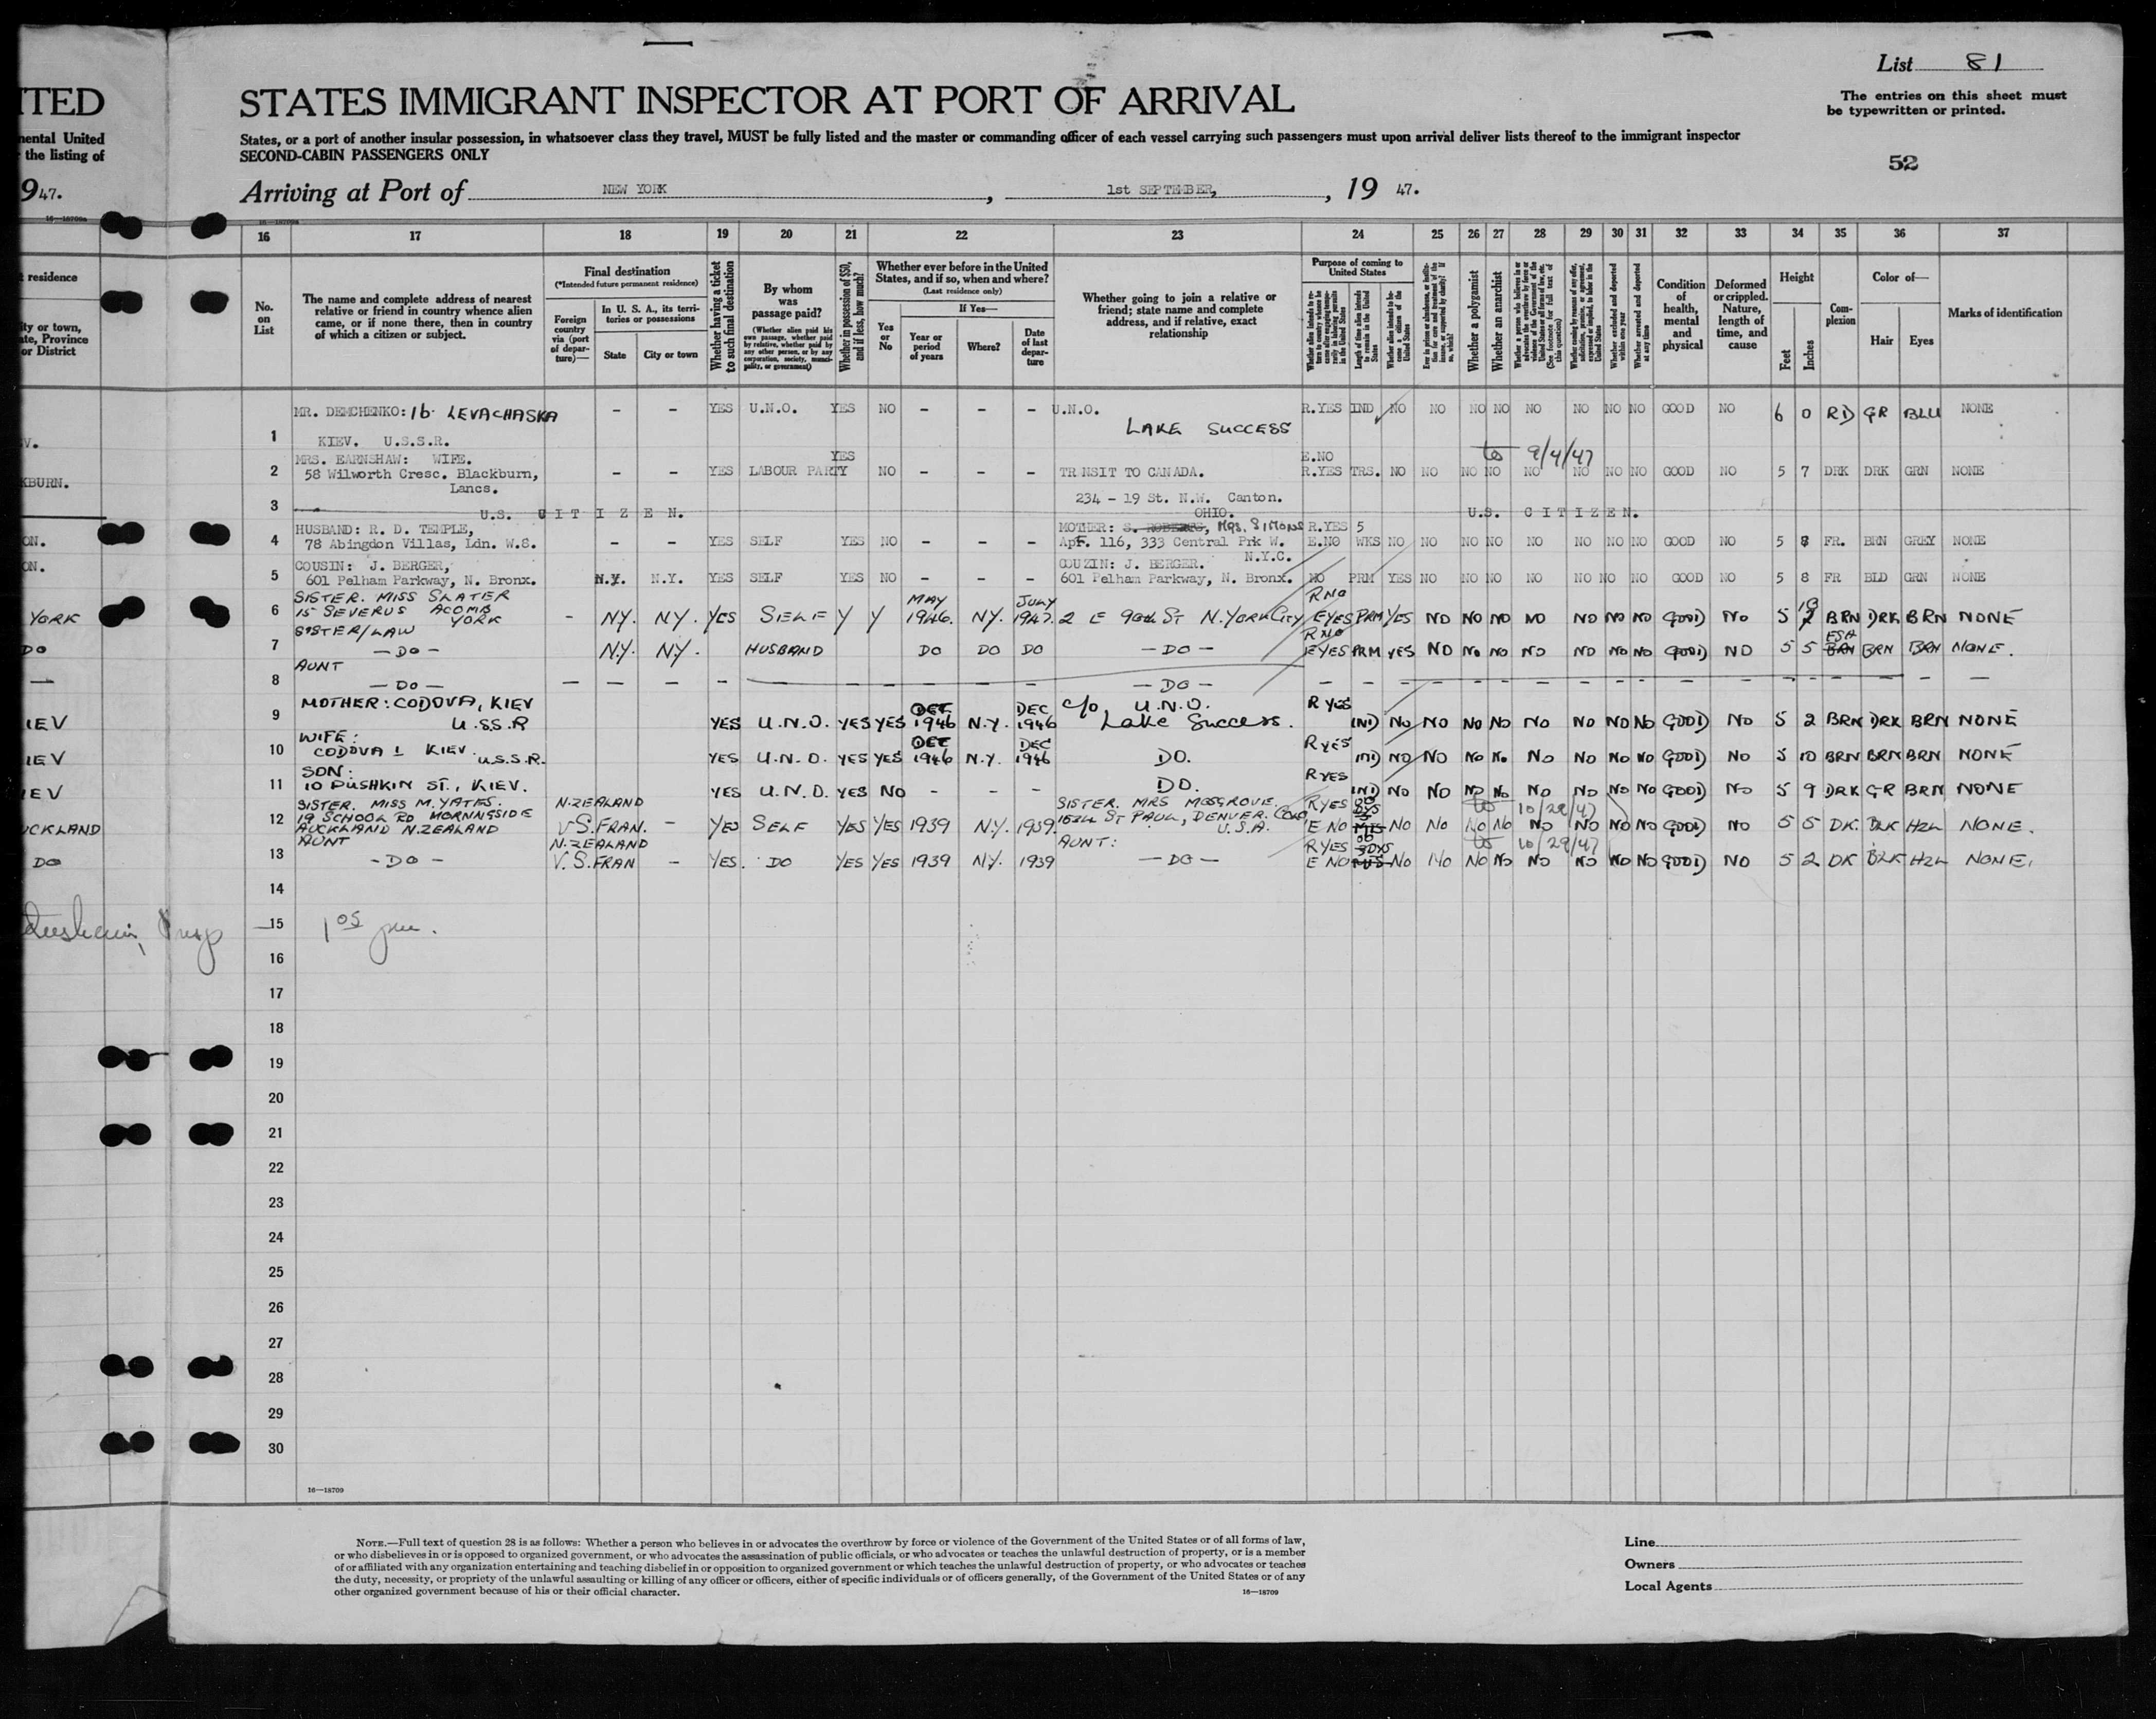 List 81
The entries on this sheet must
be typewritten or printed.
ITED
STATES IMMIGRANT INSPECTOR AT PORT OF ARRIVAL
mental United
the listing of
States, or a port of another insular possession, in whatsoever class they travel, MUST be fully listed and the master or commanding officer of each vessel carrying such passengers must upon arrival deliver lists thereof to the immigrant inspector
SECOND-CABIN PASSENGERS ONLY
52
947.
Arriving at Port of NEW YORK, 1st SEPTEMBER, 19 47.
16—18709a
16 17 18 19 20 21 22 23 24 25 26 27 28 29 30 31 32 33 34 35 36 37
residence
ity or town,
ate, Province
or District
No.
on
List
The name and complete address of nearest
relative or friend in country whence alien
came, or if none there, then in country
of which a citizen or subject.
Final destination
(*Intended future permanent residence)
Foreign
country
via (port
of depar-
ture)—
In U. S. A., its terri-
tories or possessions
State
City or town
Whether having a ticket
to such final destination
By whom
was
passage paid?
(Whether alien paid his
own passage, whether paid
by relative, whether paid by
any other person, or by any
corporation, society, munici-
pality, or government)
Whether in possession of $50,
and if less, how much?
Whether ever before in the United
States, and if so, when and where?
(Last residence only)
Yes
or
No
If Yes—
Year or
period
of years
Where?
Date
of last
depar-
ture
Whether going to join a relative or
friend; state name and complete
address, and if relative, exact
relationship
Purpose of coming to
United States
Length of time alien intends
to remain in the United
States
Whether alien intends to be-
come a citizen of the
United States
Whether a polygamist
Whether an anarchist
Whether excluded and deported
within one year
Whether arrested and deported
at any time
Condition
of
health,
mental
and
physical
Deformed
or crippled.
Nature,
length of
time, and
cause
Height
Feet
Inches
Com-
plexion
Color of—
Hair
Eyes
Marks of identification
MR. DEMCHENKO: 16 LEVACHASKA - - YES U.N.O. YES NO - - - U.N.O. R.YES IND NO NO NO NO NO NO NO NO GOOD NO 6 0 RD GR BLU NONE
LAKE SUCCESS
1 KIEV. U.S.S.R.
MRS. EARNSHAW: WIFE. YES E.NO to 9/4/47
2 58 Wilworth Cresc. Blackburn, - - YES LABOUR PARTY NO - - - TRNSIT TO CANADA. R.YES TRS. NO NO NO NO NO NO NO NO GOOD NO 5 7 DRK DRK GRN NONE
KBURN. Lancs.
234 - 19 St. N.W. Canton.
3 U.S. CITIZEN. OHIO. U.S. CITIZEN.
HUSBAND: R. D. TEMPLE, MOTHER: S. ROBERTS, Mrs. SIMONS R.YES 5
ON. 4 78 Abingdon Villas, Ldn. W.8. - - YES SELF YES NO - - - Apt. 116, 333 Central Prk W. E.NO WKS NO NO NO NO NO NO NO NO GOOD NO 5 8 FR. BRN GREY NONE
N.Y.C.
ON. COUSIN: J. BERGER, COUZIN: J. BERGER.
5 601 Pelham Parkway, N. Bronx. N.Y. N.Y. YES SELF YES NO - - - 601 Pelham Parkway, N. Bronx. NO PRM YES NO NO NO NO NO NO NO GOOD NO 5 8 FR BLD GRN NONE
SISTER. MISS SLATER MAY JULY R NO
YORK 6 15 SEVERUS ACOMB YORK - N.Y. N.Y. YES SELF Y Y 1946. N.Y. 1947. 2 E 90th ST N.YORK CITY E YES PRM YES NO NO NO NO NO NO NO GOOD NO 5 10 BRN DRK BRN NONE
SISTER/LAW R NO
DO 7 — DO — N.Y. N.Y. HUSBAND DO DO DO — DO — E YES PRM YES NO NO NO NO NO NO NO GOOD NO 5 5 BRN BRN BRN NONE.
AUNT
8 — DO — — DO —
MOTHER: CODOVA, KIEV DEC DEC c/o U.N.O. R YES
IEV 9 U.S.S.R YES U.N.O. YES YES 1946 N.Y. 1946 Lake Success. IND NO NO NO NO NO NO NO NO GOOD NO 5 2 BRN DRK BRN NONE
WIFE: DEC DEC R YES
IEV 10 CODOVA 1 KIEV. U.S.S.R. YES U.N.O. YES YES 1946 N.Y. 1946 DO. IND NO NO NO NO NO NO NO NO GOOD NO 5 10 BRN BRN BRN NONE
SON: R YES
IEV 11 10 PUSHKIN ST., KIEV. YES U.N.O. YES NO - - - DO. IND NO NO NO NO NO NO NO NO GOOD NO 5 9 DRK GR BRN NONE
SISTER. MISS M. YATES. N.ZEALAND SISTER. MRS MOSGROVE. R YES to 10/29/47
UCKLAND 12 19 SCHOOL RD MORNINGSIDE V S. FRAN. - YES SELF YES YES 1939 N.Y. 1939. 1624 ST PAUL, DENVER. COLO U.S.A. E NO NO NO NO NO NO NO NO NO GOOD NO 5 5 DK. BLK HZL NONE.
AUCKLAND N.ZEALAND
AUNT N.ZEALAND AUNT: R YES 30 DYS to 10/29/47
DO 13 — DO — V. S. FRAN - YES. DO YES YES 1939 N.Y. 1939 — DO — E NO NO NO NO NO NO NO NO NO GOOD NO 5 2 DK BLK HZL NONE.
14
15 1 05 pm.
16
17
18
19
20
21
22
23
24
25
26
27
28
29
30
16—18709
NOTE.—Full text of question 28 is as follows: Whether a person who believes in or advocates the overthrow by force or violence of the Government of the United States or of all forms of law,
or who disbelieves in or is opposed to organized government, or who advocates the assassination of public officials, or who advocates or teaches the unlawful destruction of property, or is a member
of or affiliated with any organization entertaining and teaching disbelief in or opposition to organized government or which teaches the unlawful destruction of property, or who advocates or teaches
the duty, necessity, or propriety of the unlawful assaulting or killing of any officer or officers, either of specific individuals or of officers generally, of the Government of the United States or of any
other organized government because of his or their official character.
16—18709
Line
Owners
Local Agents